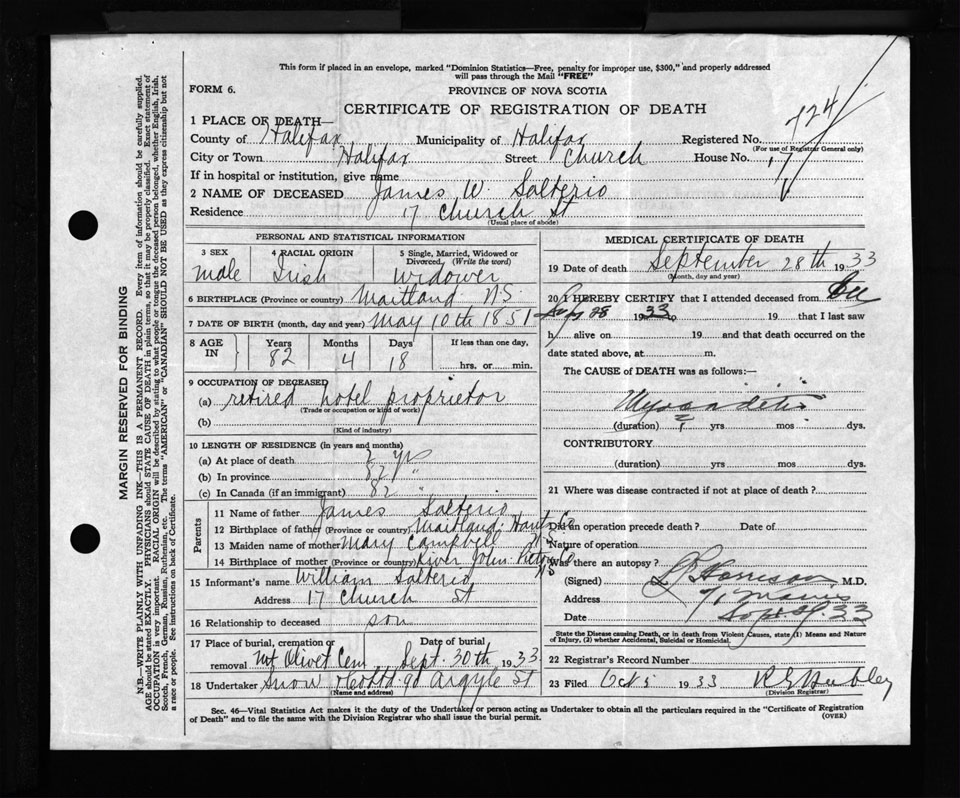 This form if placed in an envelope, marked "Dominion Statistics—Free, penalty for improper use, $300," and properly addressed
will pass through the Mail "FREE"
FORM 6.
PROVINCE OF NOVA SCOTIA
CERTIFICATE OF REGISTRATION OF DEATH
1 PLACE OF DEATH—
County of Halifax Municipality of Halifax Registered No. 724
(For use of Registrar General only)
City or Town Halifax Street Church House No. 17
If in hospital or institution, give name
2 NAME OF DECEASED James W. Salterio
Residence 17 Church St
(Usual place of abode)
PERSONAL AND STATISTICAL INFORMATION
3 SEX 4 RACIAL ORIGIN 5 Single, Married, Widowed or
Divorced. (Write the word)
Male Irish Widower
6 BIRTHPLACE (Province or country) Maitland N.S.
7 DATE OF BIRTH (month, day and year) May 10th 1851
8 AGE IN Years Months Days If less than one day,
82 4 18 hrs. or min.
9 OCCUPATION OF DECEASED
(a) retired hotel proprietor
(Trade or occupation or kind of work)
(b)
(Kind of industry)
10 LENGTH OF RESIDENCE (in years and months)
(a) At place of death 2 yrs
(b) In province 82 "
(c) In Canada (if an immigrant) 82 "
Parents
11 Name of father James Salterio
12 Birthplace of father (Province or country) Maitland Hants Co
13 Maiden name of mother Mary Campbell N.S
14 Birthplace of mother (Province or country) River John Pictou Co N.S
15 Informant's name William Salterio
Address 17 Church St
16 Relationship to deceased son
17 Place of burial, cremation or Date of burial
removal Mt Olivet Cem Sept. 30th 1933
18 Undertaker Snow & Co Ltd. 90 Argyle St
(Name and address)
MEDICAL CERTIFICATE OF DEATH
19 Date of death September 28th 1933
(Month, day and year)
20 I HEREBY CERTIFY that I attended deceased from
Sept 28 1933 to 19 that I last saw
h alive on 19 and that death occurred on the
date stated above, at m.
The CAUSE of DEATH was as follows:—
Myocarditis
(duration) ? yrs mos dys.
CONTRIBUTORY
(duration) yrs mos dys.
21 Where was disease contracted if not at place of death?
Did an operation precede death? Date of
Nature of operation
Was there an autopsy?
(Signed) Morrison M.D.
Address
Date Sept 33
State the Disease causing Death, or in death from Violent Causes, state (1) Means and Nature
of Injury, (2) whether Accidental, Suicidal or Homicidal.
22 Registrar's Record Number
23 Filed Oct 5 1933
(Division Registrar)
Sec. 46—Vital Statistics Act makes it the duty of the Undertaker or person acting as Undertaker to obtain all the particulars required in the "Certificate of Registration
of Death" and to file the same with the Division Registrar who shall issue the burial permit.
(OVER)
MARGIN RESERVED FOR BINDING
N.B.—WRITE PLAINLY WITH UNFADING INK—THIS IS A PERMANENT RECORD. Every item of information should be carefully supplied.
AGE should be stated EXACTLY. PHYSICIANS should STATE CAUSE OF DEATH in plain terms, so that it may be properly classified. Exact statement of
OCCUPATION is very important. RACIAL ORIGIN will be described by stating to what people or tongue the deceased person belonged, whether English, Irish,
Scotch, French, German, Russian, Ruthenian, etc. The terms "AMERICAN" or "CANADIAN" SHOULD NOT BE USED as they express citizenship but not
a race or people. See instructions on back of Certificate.